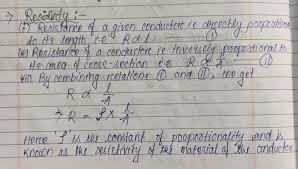 → Resistivity :-
(i) Resistance of a given conductor is directly proportional
to its length i.e R ∝ l ... (I)
(ii) Resistance of a conductor is inversely proportional to
the area of cross-section i.e R ∝ 1/A (II)
(iii) By combining relations (I) and (II), we get
R ∝ l/A
⇒ R = ρ × l/A
Here 'ρ' is the constant of proportionality and is
known as the resistivity of the material of the conductor